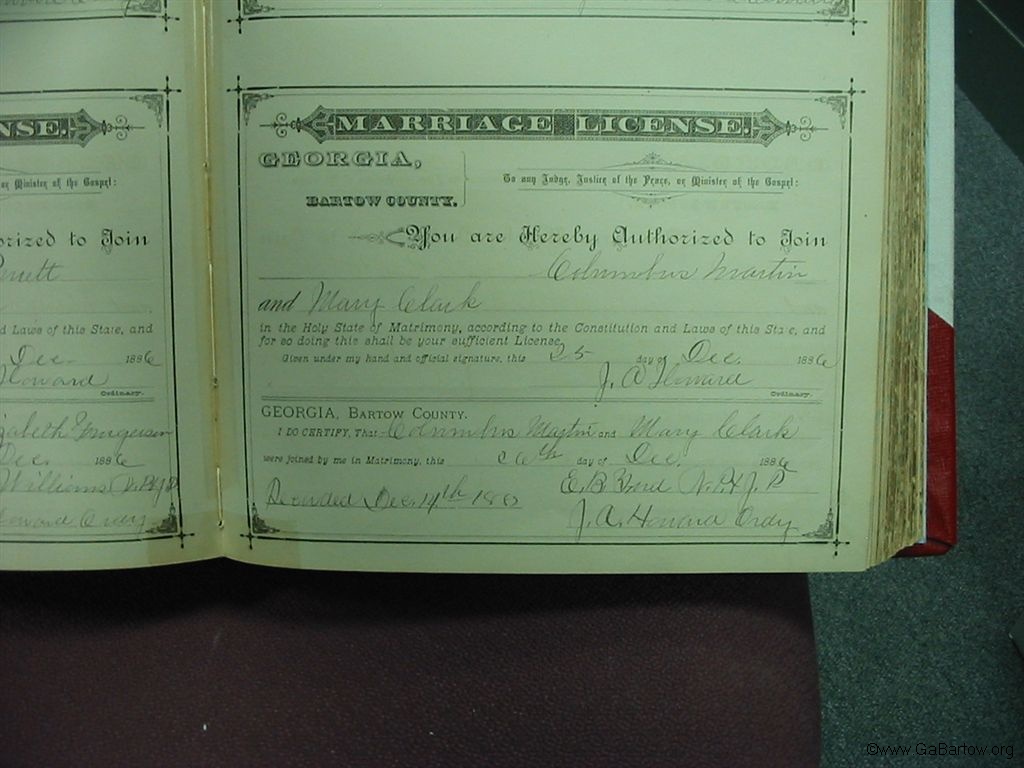 NSE.
or Minister of the Gospel:
orized to Join
d Laws of this State, and
Dec 1886
Howard
Ordinary.
Dec. 1886
Williams N.P.&J.P.
Howard Ordy
MARRIAGE LICENSE.
GEORGIA,
BARTOW COUNTY.
To any Judge, Justice of the Peace, or Minister of the Gospel:
You are Hereby Authorized to Join
Columbus Martin
and Mary Clark
in the Holy State of Matrimony, according to the Constitution and Laws of this State, and
for so doing this shall be your sufficient License.
Given under my hand and official signature, this 25 day of Dec. 1886
J. A. Howard
Ordinary.
GEORGIA, BARTOW COUNTY.
I DO CERTIFY, That Columbus Martin and Mary Clark
were joined by me in Matrimony, this 26th day of Dec. 1886
E. B. Ford N.P.&J.P.
Recorded Dec.
J. A. Howard Ordy
©www.GaBartow.org